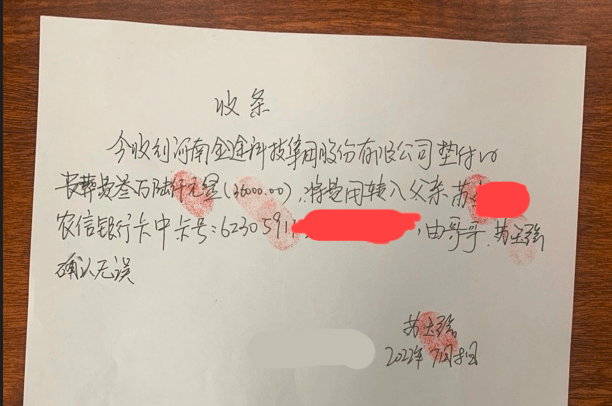 收条
今收到河南金途科技集团股份有限公司垫付的
丧葬费叁万陆仟元整(36000.00),将费用转入父亲苏
农信银行卡中卡号:6230591,由哥哥,苏
确认无误
苏
2022年7月